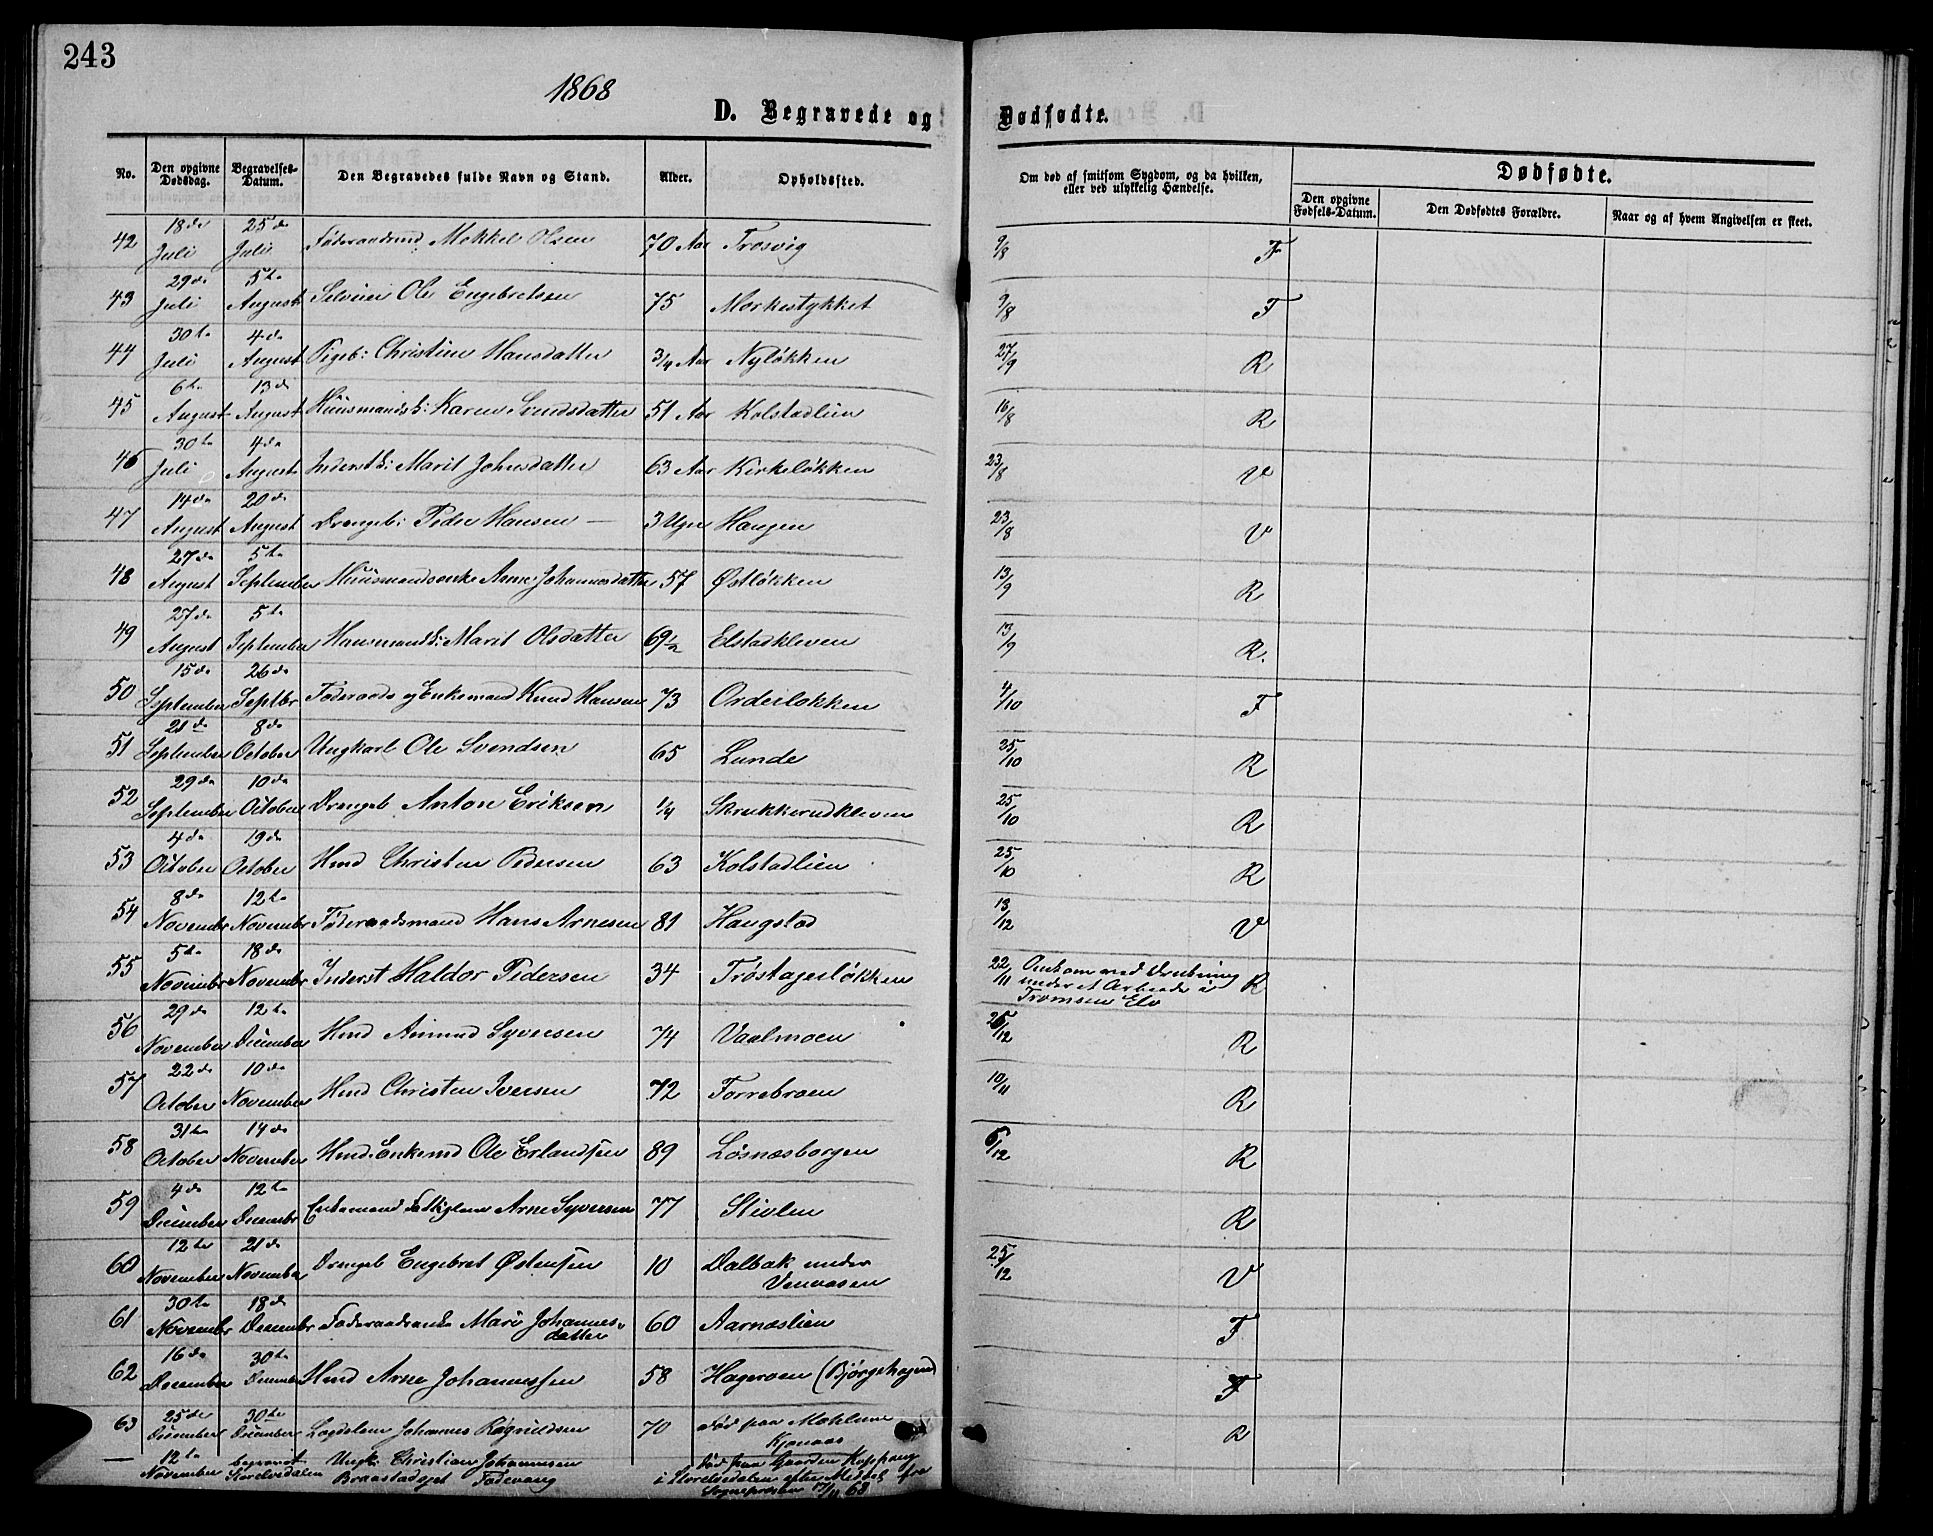 243
1868
D. Begravede og Dødfødte.
No. Den opgivne Dødsdag. Begravelses-Datum. Den Begravedes fulde Navn og Stand. Alder. Opholdssted. Om død af smitsom Sygdom, og da hvilken, eller ved ulykkelig Hændelse. Dødfødte.
Den opgivne Fødsels-Datum. Den Dødfødtes Forældre. Naar og af hvem Angivelsen er skeet.
42 18de Juli 25de Juli Føderaadsmd Mekkel Olsen 70 Aar Trosvig 9/8 F
43 29de Juli 5te August Selveier Ole Engebretsen 75 Mørkestykket 9/8 F
44 30te Juli 4de August Pigeb: Christine Hansdatter 3/4 Aar Nyløkken 27/9 R
45 6te August 13de August Huusmandsk: Karen Svendsdatter 51 Aar Kolstadlien 16/8 R
46 30te Juli 4de August Inderstk: Marit Johnsdatter 63 Aar Kirkeløkken 23/8 V
47 14de August 20de August Drengeb: Peder Hansen — 3 Uger Haugen 23/8 V
48 27de August 5te September Huusmandsenke Anne Johannesdatter 57 Østløkken 13/9 R
49 27de August 5te September Huusmandsk: Marit Olsdatter 69 1/2 Elstadkleven 13/9 R.
50 15de September 26de Septbr Føderaads og Enkemand Knud Hansen 73 Orderløkken 4/10 F
51 21de September 8de October Ungkarl Ole Svendsen 65 Lunde 25/10 R
52 29de September 10de October Drengeb Anton Eriksen 1/4 Skrukkerudkleven 25/10 R
53 4de October 19de October Hmd Christen Pedersen 63 Kolstadlien 25/10 R
54 8de Novembr 12te Novembr Føderaadsmand Hans Arnesen 81 Haugstad 13/12 V
55 5te Novembr 18de Novembr Inderst Haldor Pedersen 34 Trøstagerløkken 22/11 Omkom ved Drukning under et Arbeide i Tromsen Elv R
56 29de November 12te December Hmd Amund Syversen 74 Vaalmoen 26/12 R
57 22de October 10de November Hmd Christen Iversen 72 Torrebroen 10/11 R
58 31te October 14de November Hmd. Enkemd Ole Erlandsen 89 Løsnæsborgen 6/12 R
59 4de December 12te Decembr Enkemand Fattiglem Arne Syversen 77 Stivlen R
60 12te November 21de November Drengeb Engebret Østensen 10 Dalbak under Venaasen 25/12 V
61 30te Novembr 18de Decembr Føderaadsenke Mari Johannes-datter 60 Aarnæslien F
62 16de December 30te December Hmd Arne Johannessen 58 Hageroen (Bjørgeshogend) F
63 25de December 30te December Lægdslem Johannes Rognildsen 70 død paa Moklune Kjonaas R
— 12te November begravet Storelvedalen Ungk: Christian Johannesen Braastadeget Fodevang død paa Gaarden Koppang i Storelvedalen efter Meddel fra Sognepresten 17/11 68